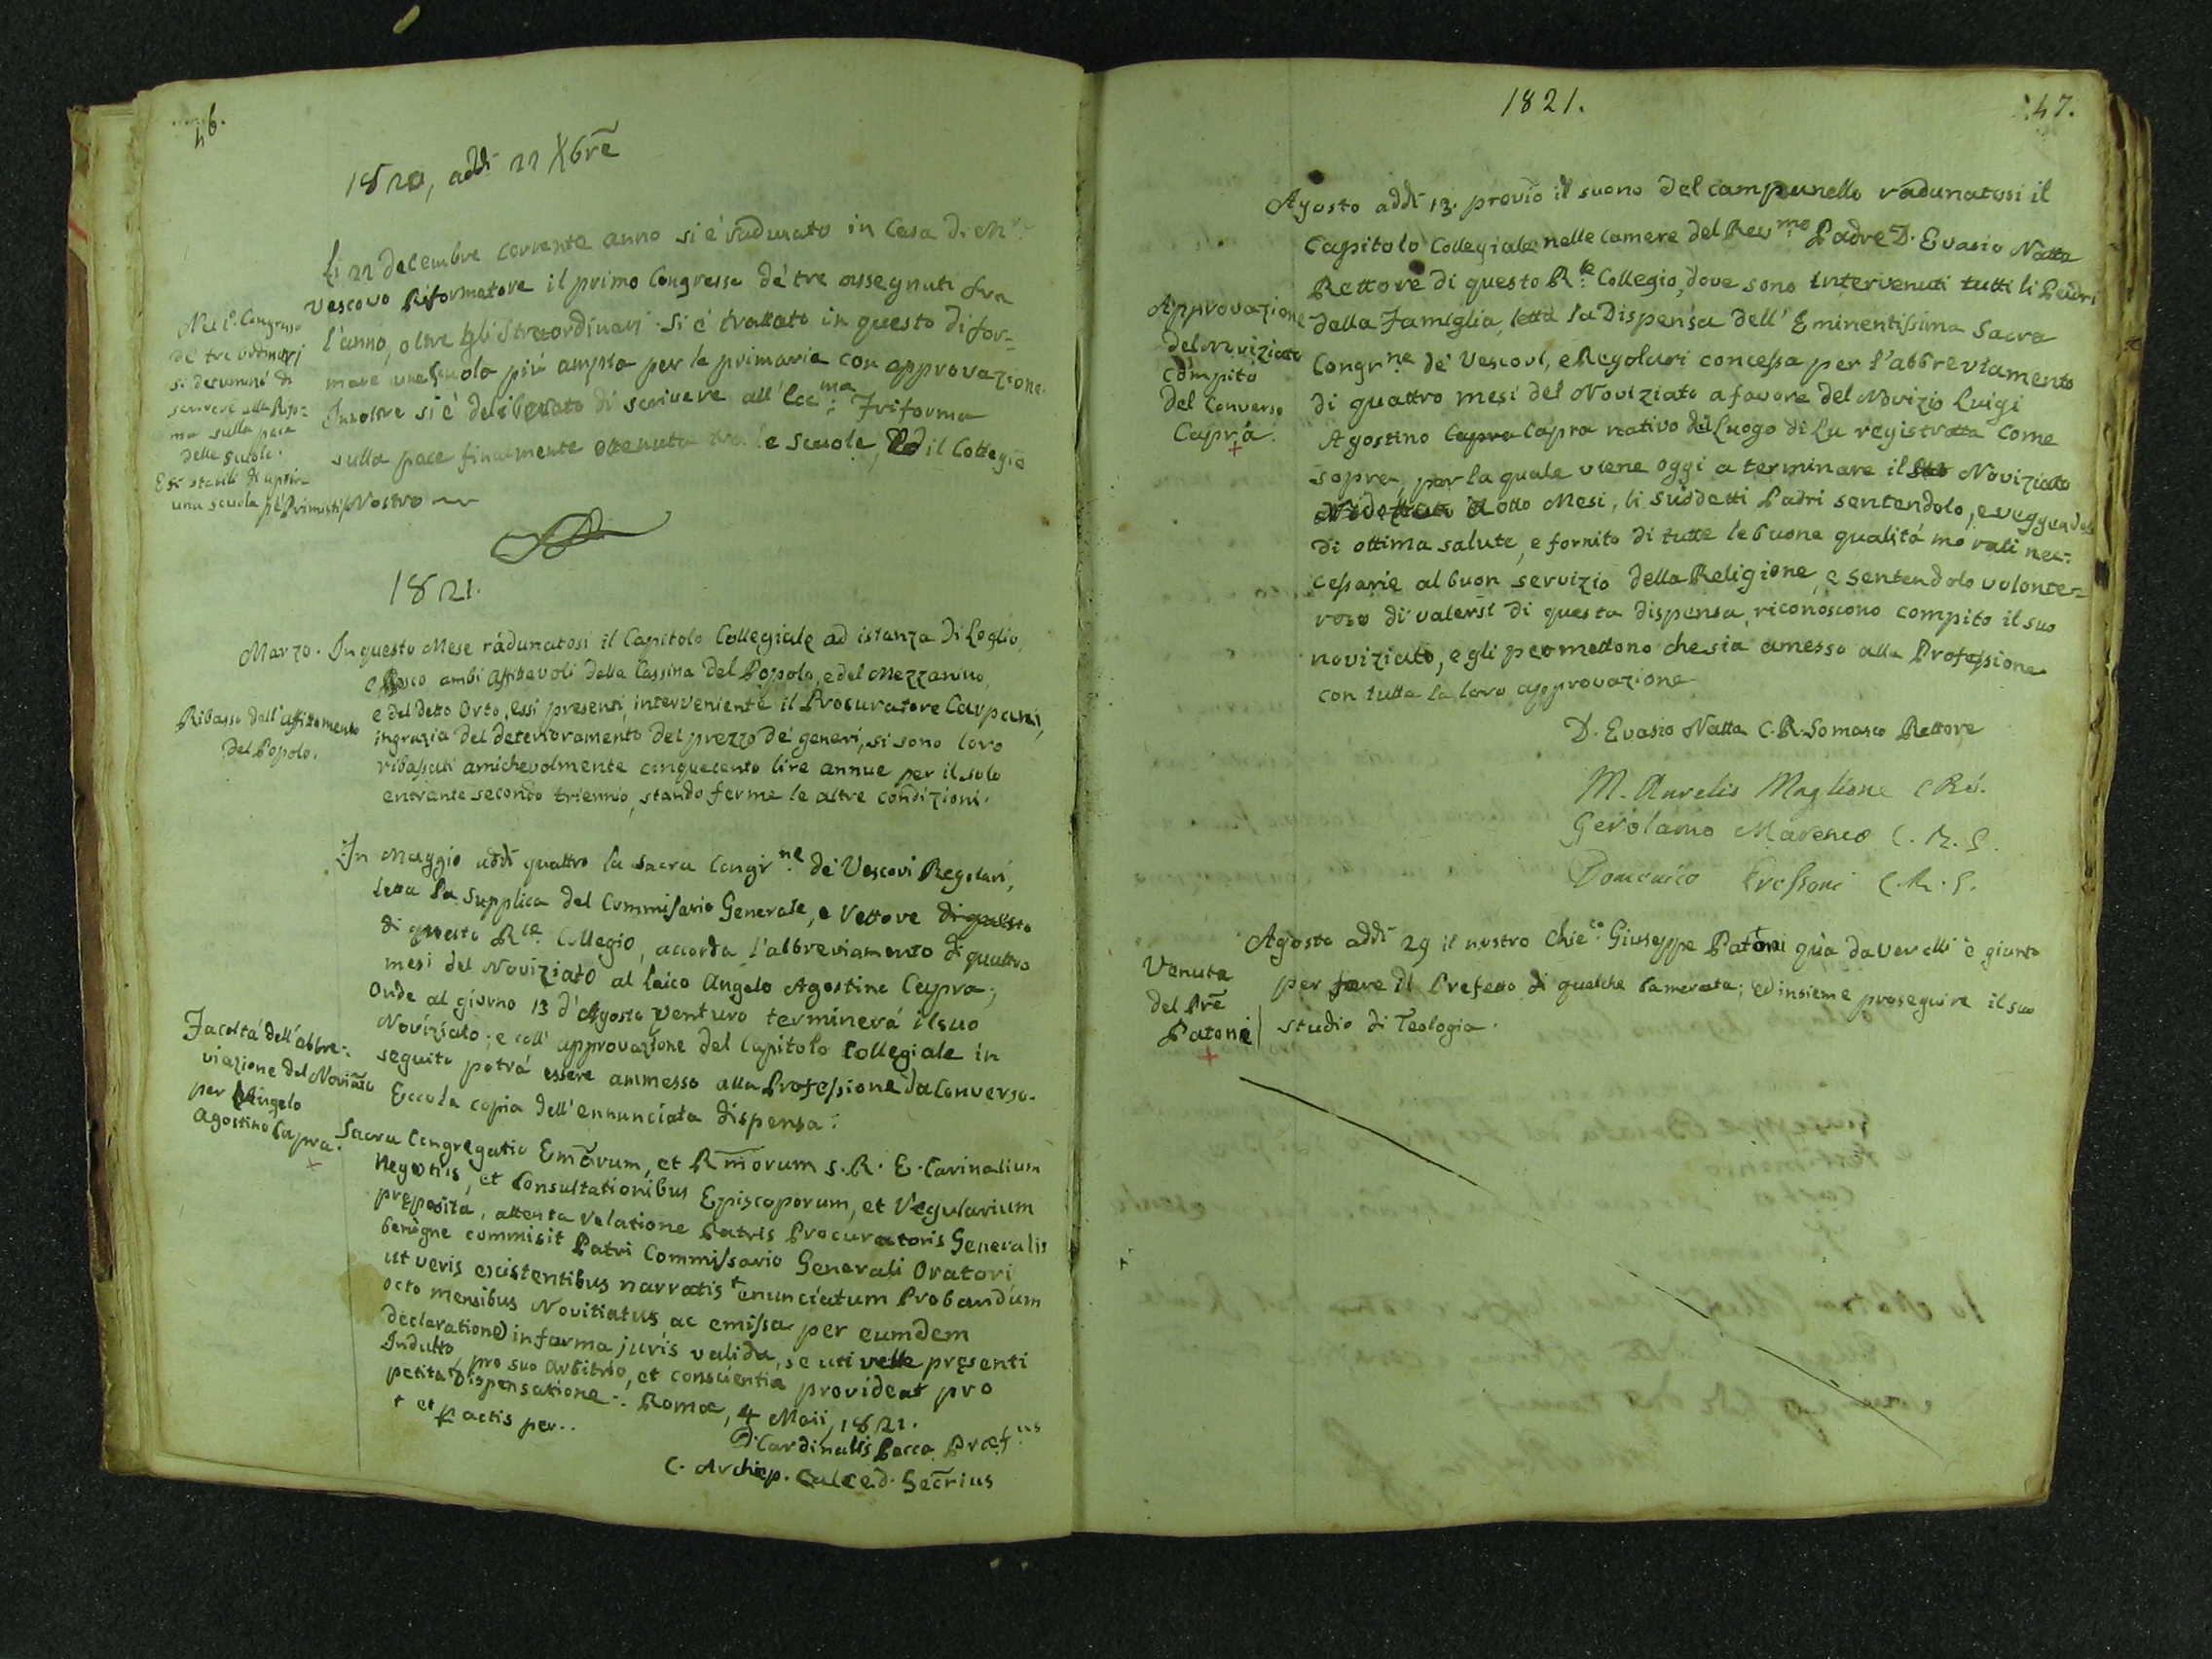 46.
1820, addì 22 Xbrē
Li 22 decembre corrente anno si è radunato in Casa di M.r
Vescovo Riformatore il primo Congresso de' tre assegnati fra
l'anno, oltre gli Straordinarj. Si è trattato in questo di for-
mare una scuola più ampia per la primaria con approvazione.
Innoltre si è deliberato di scrivere all' Ecc.ma Triforma
sulla pace finalmente ottenuta tra le scuole, ed il Collegio
Nostro
Nel 1°. Congresso
de' tre ordinarj
si determinò di
scrivere alla Rifor-
ma sulla pace
delle scuole.
E si stabilì di aprire
una scuola pe' Primisti
1821.
Marzo. In questo Mese radunatosi il Capitolo Collegiale ad istanza di Loglio,
e Bosco ambi affittavoli della Cassina del Popolo, e del Mezzanino,
e del detto Orto, essi presenti, interveniente il Procuratore Carpani,
in grazia del deterioramento del prezzo de' generi, si sono loro
ribassati amichevolmente cinquecento lire annue per il solo
entrante secondo triennio, stando ferme le altre condizioni.
Ribasso dell'affittamento
del Popolo.
In Maggio addì quattro la Sacra Congr.ne de' Vescovi Regolari,
letta la supplica del Commissario Generale, e Rettore di questo
di questo R.le Collegio, accorda l'abbreviamento di quattro
mesi del Noviziato al laico Angelo Agostino Capra;
Onde al giorno 13 d'Agosto venturo terminerà il suo
Noviziato; e coll' approvazione del Capitolo Collegiale in
seguito potrà essere ammesso alla Professione da Converso.
Eccola copia dell'ennunciata dispensa:
Facoltà dell'abbre-
viazione del Noviziato
per Angelo
Agostino Capra.
+
Sacra Congregatio Emōrum, et Rm̄orum S. R. E. Carinalium
Negotiis, et Consultationibus Episcoporum, et Regularium
pręposita, attenta relatione Patris Procuratoris Generalis
benigne commisit Patri Commissario Generali Oratori
ut veris existentibus narratis + enunciatum Probandum
octo mensibus Novitiatus, ac emissa per eumdem
declaratione in forma juris valida, se uti velle pręsenti
Indulto, pro suo arbitrio, et conscientia provideat pro
petita dispensatione. Romæ, 4 Maii, 1821.
+ et peractis per..
D. Cardinalis Pacca Præf.us
C. Archiep. Calced. Secrīus
1821.
47.
Agosto addì 13. previo il suono del campanello radunatosi il
Capitolo Collegiale nelle camere del Rev.mo Padre D. Evasio Natta
Rettore di questo R.le Collegio, dove sono intervenuti tutti li Padri
della Famiglia, letta la Dispensa dell' Eminentissima Sacra
Congr.ne de' Vescovi, e Regolari concessa per l'abbreviamento
di quattro mesi del Noviziato a favore del Novizio Luigi
Agostino Capra Capra nativo del Luogo di Lu registrata come
sopra, per la quale viene oggi a terminare il suo Noviziato
otto Mesi, li suddetti Padri sentendolo, e veggendolo
di ottima salute, e fornito di tutte le buone qualità morali nec-
cessarie al buon servizio della Religione, e sentendolo volonte-
roso di valersi di questa dispensa, riconoscono compito il suo
noviziato, e gli permettono che sia amesso alla Professione
con tutta la loro approvazione
Approvazione
del Noviziato
compito
del Converso
Capra.
+
D. Evasio Natta C. R. Somasco Rettore
M. Aurelio Maglione C R S.
Gerolamo Marenco C. R. S.
Domenico C. R. S.
Agosto addì 29 il nostro Chie.co Giuseppe Patoni quà da Vercelli è giunto
per fare il Prefetto di qualche Camerata; ed insieme proseguire il suo
studio di Teologia.
Venuta
del Prē
Patoni
+